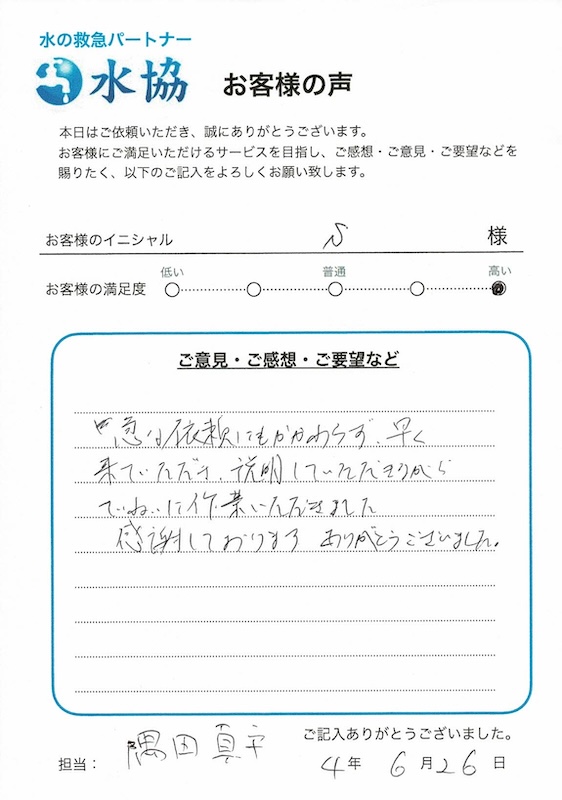 水の救急パートナー
水協 お客様の声
本日はご依頼いただき、誠にありがとうございます。
お客様にご満足いただけるサービスを目指し、ご感想・ご意見・ご要望などを
賜りたく、以下のご記入をよろしくお願い致します。
お客様のイニシャル S 様
低い 普通 高い
お客様の満足度
ご意見・ご感想・ご要望など
急な依頼にもかかわらず、早く
来ていただき、説明していただきながら
ていねいに作業いただきました
感謝しております ありがとうございました。
ご記入ありがとうございました。
担当： 隅田真
4年 6月26日